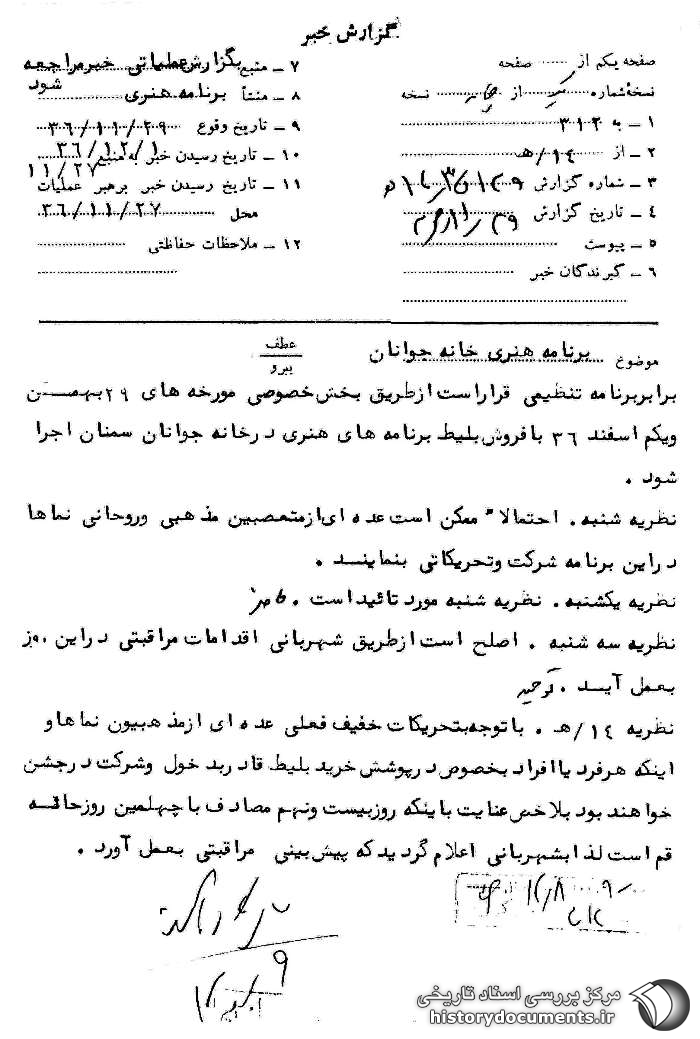 گزارش خبر
صفحه یکم از ...... صفحه
نسخهٔ شماره ...... از ...... نسخه
۱ ــ به ۳۱۲
۲ ــ از ۱۴/هـ
۳ ــ شماره گزارش
۴ ــ تاریخ گزارش
۵ ــ پیوست
۶ ــ گیرندگان خبر
۷ ــ منبع بگزارش عملیاتی خبر مراجعه
شود
۸ ــ منشأ برنامه هنری
۹ ــ تاریخ وقوع ۳۶/۱۱/۲۹
۳۶/۱۲/۱
۱۰ ــ تاریخ رسیدن خبر به منبع ۱۱/۲۷
۱۱ ــ تاریخ رسیدن خبر برهبر عملیات
محل ۳۶/۱۱/۲۷
۱۲ ــ ملاحظات حفاظتی
موضوع برنامه هنری خانه جوانان
عطف
پیرو
برابر برنامه تنظیمی قرار است از طریق بخش خصوصی مورخه های ۲۹ بهمـــن
ویکم اسفند ۳۶ با فروش بلیط برنامه های هنری در خانه جوانان سمنان اجرا
شود .
نظریه شنبه . احتمالاً ممکن است عده ای از متعصبین مذهبی وروحانی نماها
در این برنامه شرکت وتحریکاتی بنماینــد .
نظریه یکشنبه . نظریه شنبه مورد تائید است .
نظریه سه شنبه . اصلح است از طریق شهربانی اقدامات مراقبتی در این روز
بعمل آیــد .
نظریه ۱۴/هـ . با توجه بتحریکات خفیف فعلی عده ای از مذهبیون نماها و
اینکه هرفرد یا افراد بخصوص در پوشش خرید بلیط قادر بدخول وشرکت در جشن
خواهند بود بلاخص عنایت باینکه روز بیست ونهم مصادف با چهلمین روز حادثـه
قم است لذا بشهربانی اعلام گردید که پیش بینی مراقبتی بعمل آورد .
مرکز بررسی اسناد تاریخی
historydocuments.ir